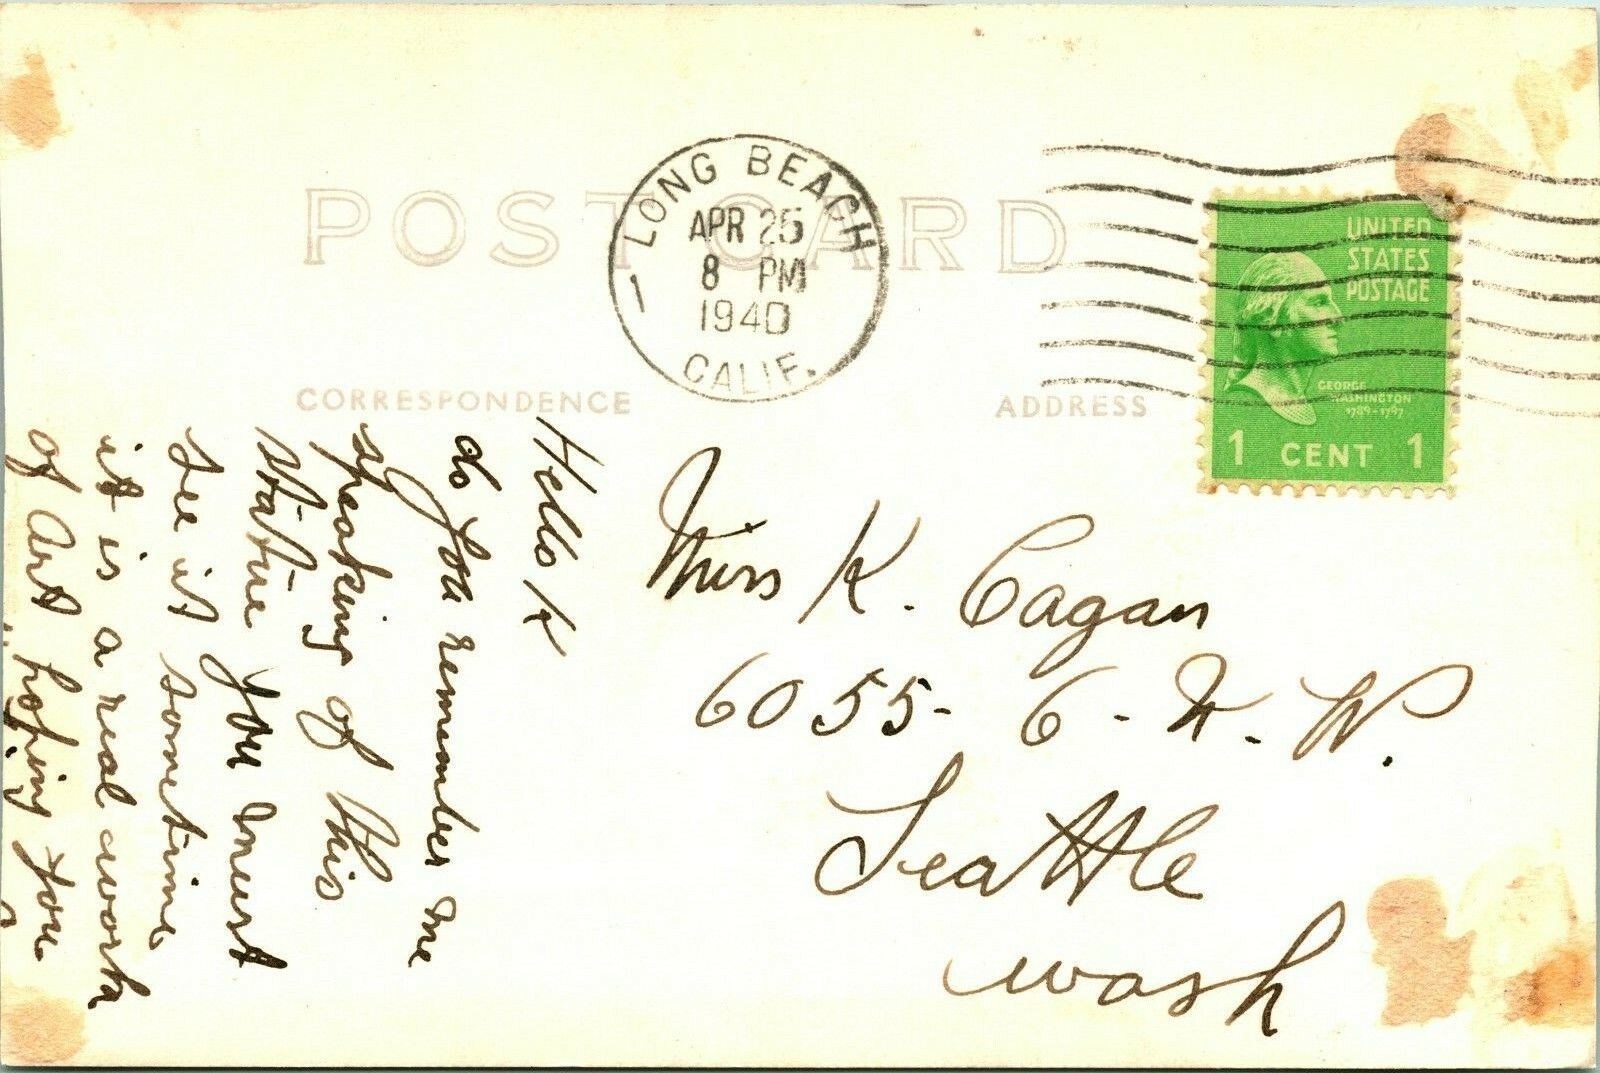 POST CARD
LONG BEACH
APR 25
8 PM
1940
CALIF.
1
UNITED
STATES
POSTAGE
GEORGE
WASHINGTON
1789-1797
1 CENT 1
CORRESPONDENCE
ADDRESS
Hello K
do you remember me
speaking of this
statue you must
see it sometime,
it is a real work
of Art hoping you
Miss K. Cagan
6055- 6 - N. W.
Seattle
wash